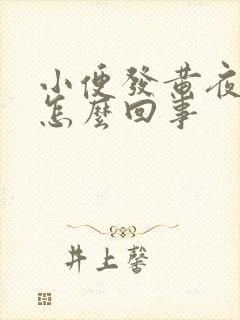 小便發黃夜
怎麼回事
井上馨